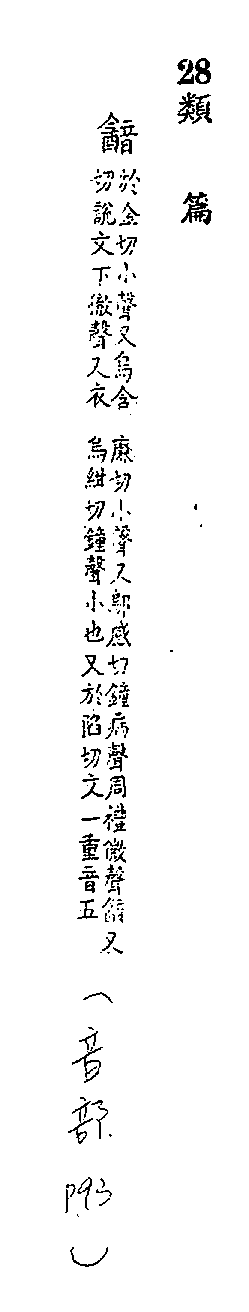 28類篇
韽
於金切小聲又烏含
切說文下徹聲又衣
廉切小聲又鄔感切鐘病聲周禮微聲韽又
烏紺切鐘聲小也又於陷切文一重音五
(音部 P93)